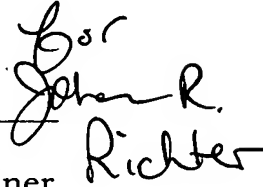 for
Johan R.
Richter
ner